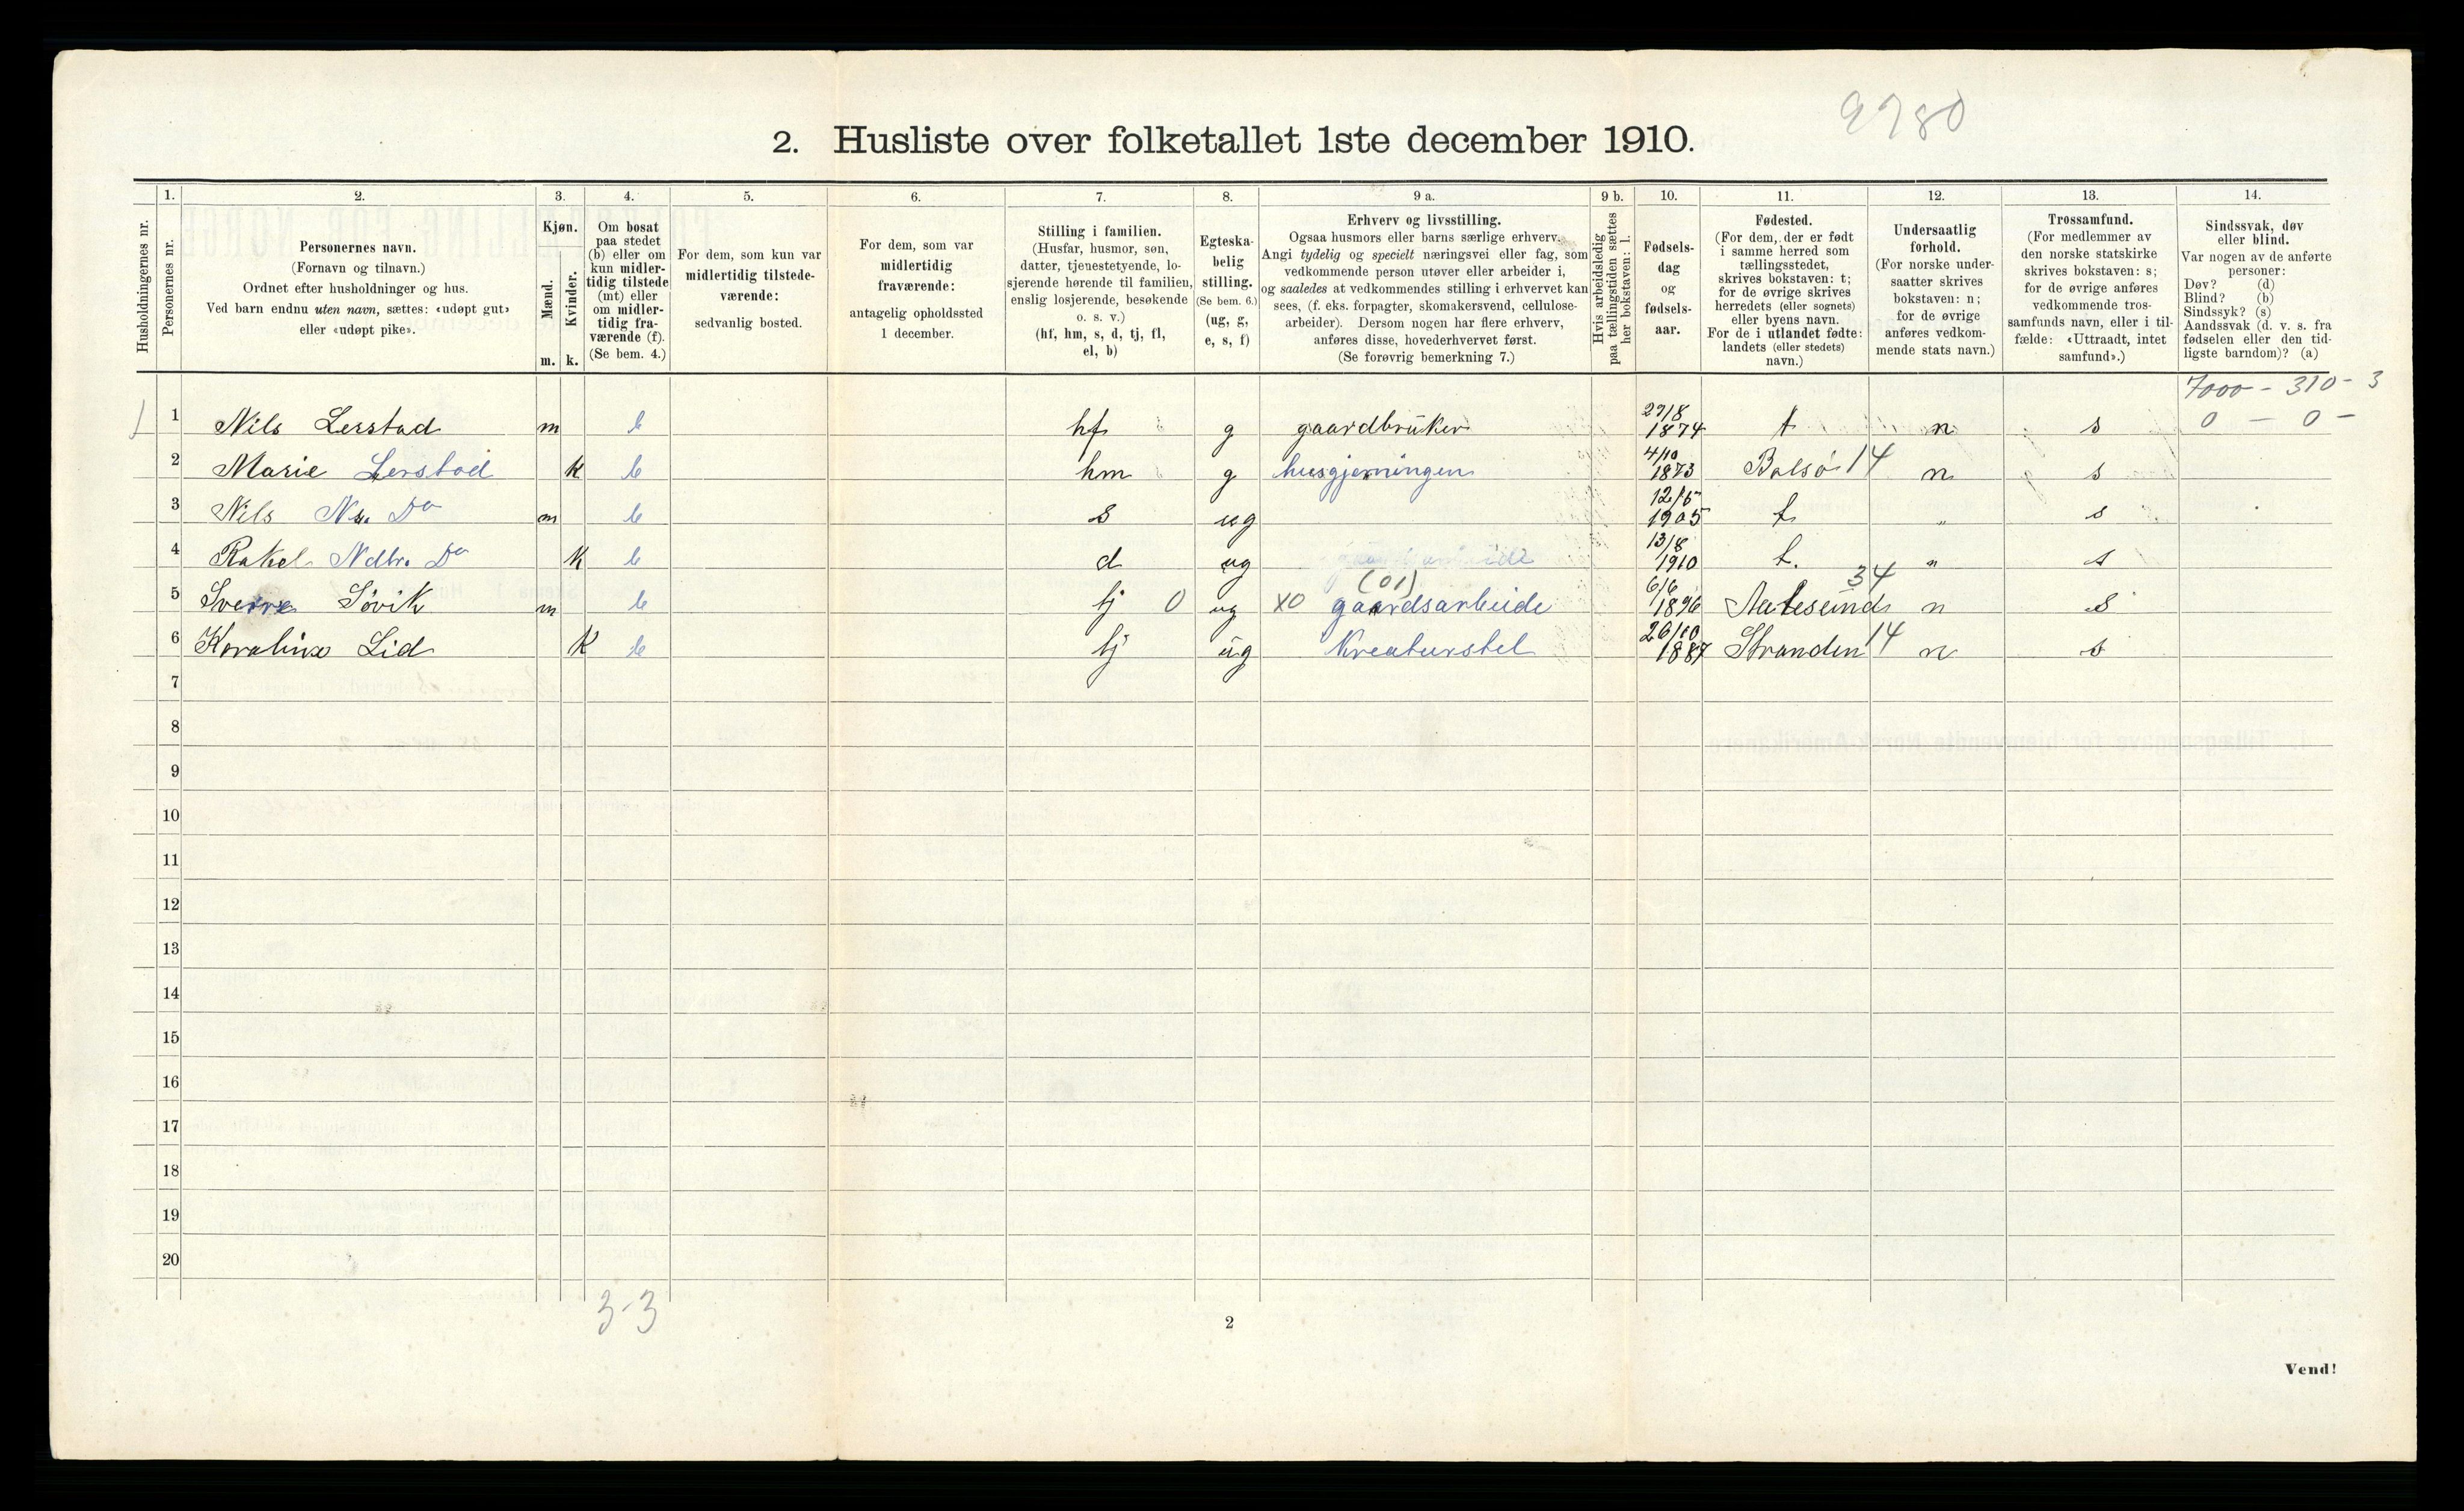 9780
2. Husliste over folketallet 1ste december 1910.
Husholdningernes nr.
1. Personernes nr.
2. Personernes navn. (Fornavn og tilnavn.) Ordnet efter husholdninger og hus. Ved barn endnu uten navn, sættes: «udøpt gut» eller «udøpt pike».
3. Kjøn. Mænd. m. Kvinder. k.
4. Om bosat paa stedet (b) eller om kun midlertidig tilstede (mt) eller om midlertidig fraværende (f). (Se bem. 4.)
5. For dem, som kun var midlertidig tilstedeværende: sedvanlig bosted.
6. For dem, som var midlertidig fraværende: antagelig opholdssted 1 december.
7. Stilling i familien. (Husfar, husmor, søn, datter, tjenestetyende, losjerende hørende til familien, enslig losjerende, besøkende o. s. v.) (hf, hm, s, d, tj, fl, el, b)
8. Egteskabelig stilling. (Se bem. 6.) (ug, g, e, s, f)
9 a. Erhverv og livsstilling. Ogsaa husmors eller barns særlige erhverv. Angi tydelig og specielt næringsvei eller fag, som vedkommende person utøver eller arbeider i, og saaledes at vedkommendes stilling i erhvervet kan sees, (f. eks. forpagter, skomakersvend, cellulosearbeider). Dersom nogen har flere erhverv, anføres disse, hovederhvervet først. (Se forøvrig bemerkning 7.)
9 b. Hvis arbeidsledig paa tællingstiden sættes her bokstaven: l.
10. Fødselsdag og fødselsaar.
11. Fødested. (For dem, der er født i samme herred som tællingsstedet, skrives bokstaven: t; for de øvrige skrives herredets (eller sognets) eller byens navn. For de i utlandet fødte: landets (eller stedets) navn.)
12. Undersaatlig forhold. (For norske undersaatter skrives bokstaven: n; for de øvrige anføres vedkommende stats navn.)
13. Trossamfund. (For medlemmer av den norske statskirke skrives bokstaven: s; for de øvrige anføres vedkommende trossamfunds navn, eller i tilfælde: «Uttraadt, intet samfund».)
14. Sindssvak, døv eller blind. Var nogen av de anførte personer: Døv? (d) Blind? (b) Sindssyk? (s) Aandssvak (d. v. s. fra fødselen eller den tidligste barndom)? (a)
7000 - 310 - 3
1 Nils Lerstad m b hf g gaardbruker 27/8 1874 t n s 0 - 0 -
2 Marie Lerstad k b hm g husgjerningen 4/10 1873 Bolsø 14 n s
3 Nils Ns. Do m b s ug 12/5 1905 t " s
4 Rakel Ndtr. Do k b d ug 13/8 1910 t. " s
5 Sverre Søvik m b tj 0 ug XO (01) gaardsarbeide 6/6 1896 Aalesund 34 n s
6 Karoline Lid k b tj ug Kreaturstel 26/10 1887 Stranden 14 n s
7
8
9
10
11
12
13
14
15
16
17
18
19
20
3-3
2
Vend!